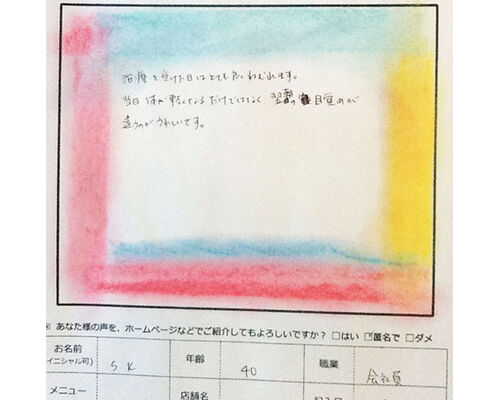 治療を受けた日はとても良くねむれます。
当日 体が軽くなるだけではなく 翌朝の 目覚めが
違うのがうれしいです。
※ あなた様の声を、ホームページなどでご紹介してもよろしいですか？ □はい ☑匿名で □ダメ
お名前 S K 年齢 40 職業 会社員
イニシャル可)
メニュー 店舗名